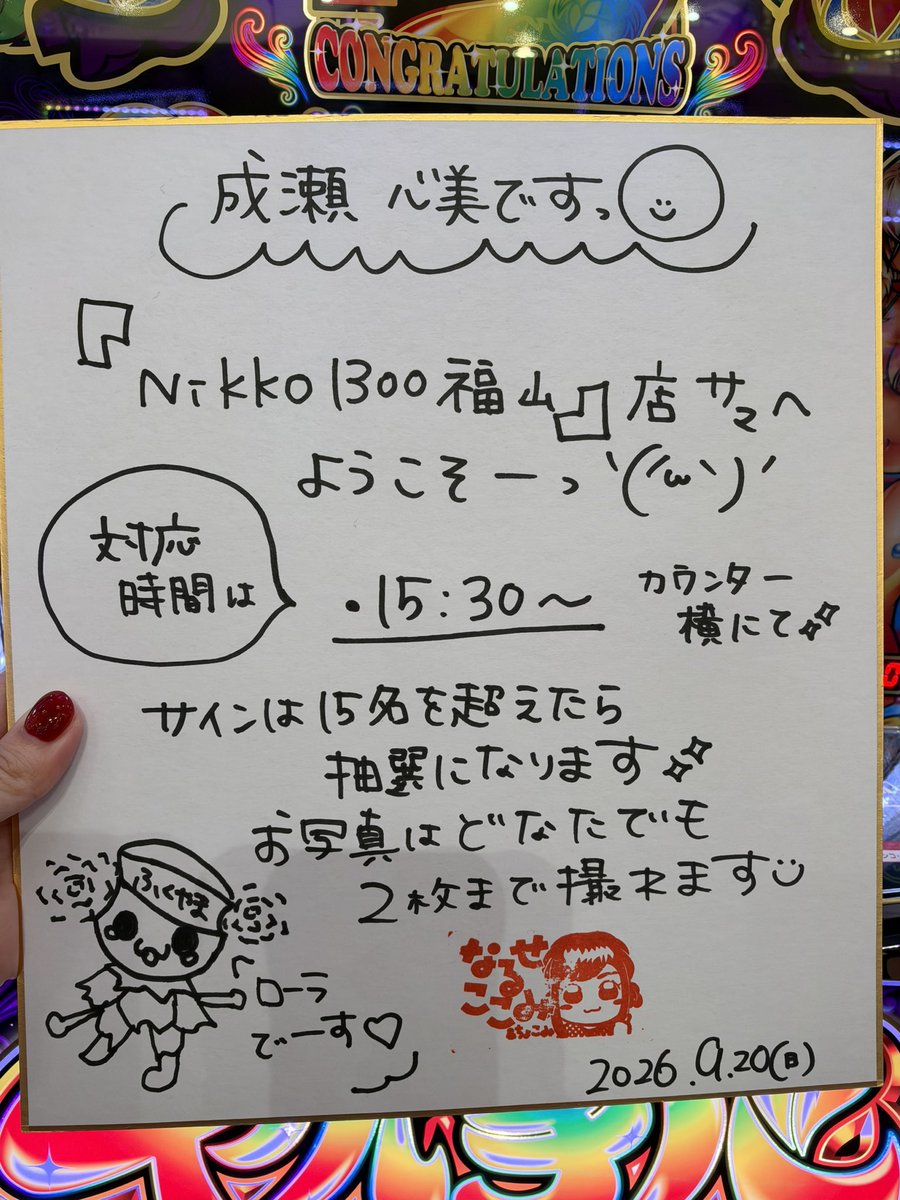 CONGRATULATIONS
成瀬 心美ですっ
『Nikko1300福山』店サマへ
ようこそーっ ヽ(´ω`)ノ
対応
時間は
・15:30〜
カウンター
横にて
サインは15名を超えたら
抽選になります
お写真はどなたでも
2枚まで撮れます
ふくやま
ローラ
でーす♡
なるせ
ここみ
2026.9.20(日)